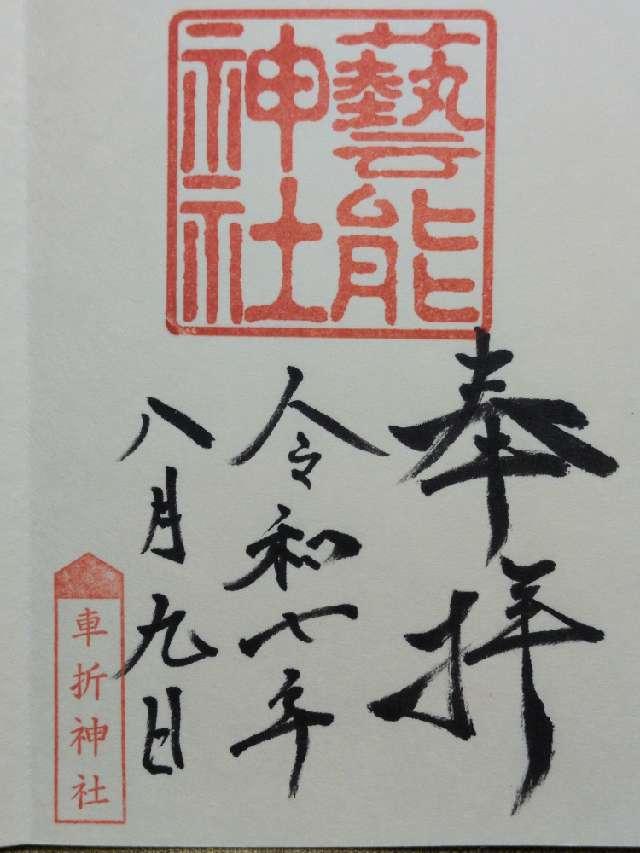 藝能
神社
奉拝
令和七年
八月九日
車折神社